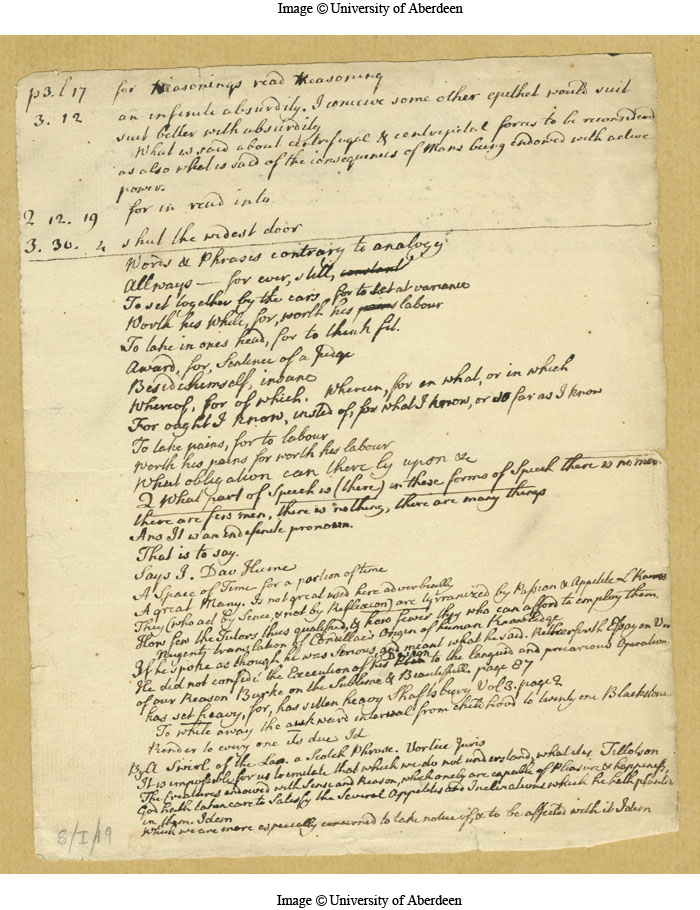 Image © University of Aberdeen
p3. l 17 for Reasonings read Reasoning
3. 12 an infinite absurdity. I conceive some other epithet would suit
suit better with absurdity
What is said about centrifugal & centripetal forces to be reconsidered
as also what is said of the consequences of Mans being endowed with active
power.
2 12. 19 for in read into
3. 30. 4 shut the widest door
Words & Phrases contrary to analogy
Allways — for ever, still, constant
To set together by the ears for to set at variance
Worth his while, for, worth his labour
To take in ones head, for to think fit.
Award, for, Sentence of a Judge
Beside himself, insane
Whereof, for of which. Wherein, for in what, or in which
For ought I know, insted of, for what I know, or so far as I know
To take pains, for to labour
Worth his pains for worth his labour
What obligation can there ly upon &c
Q What part of Speech is (there) in these forms of Speech there is no man.
there are few men, there is nothing, there are many things
Ans It is an indefinite pronoun.
That is to say.
Says I. Dav Hume
A space of Time for a portion of time
A great Many. Is not great used here adverbially
They (who act by Sense, & not by Reflexion) are tyrannized by Passion & Appetite L Kames
How few the Tutors thus qualified, & how fewer they who can afford to employ them
Nugents translation of Condillacs Origin of human Knowledge
If he spoke as though he was serious and meant what he said. Rutherforth Essay on Vir
He did not confide the Execution of his Design to the languid and precarious Operation
of our Reason Burke on the Sublime & Beautifull page 87
has set heavy, for, has sitten heavy Shaftsbury Vol 3. page 2
To while away the awkward interval from childhood to twenty one Blackstone
Render to every one his due Id
By A Swirl of the Law a Scotch Phrase. Vortice Juris
It is impossible for us to emulate that which we do not understand, what it is, Tillotson
The Creatures endowed with Sense and Reason, which onely are capable of Pleasure & happyness,
God hath taken care to Satisfy the Several Appetites and Inclinations which he hath planted
in them. Idem
Which we are more especially concerned to take notice of, & to be affected with it Idem
8/I/19
Image © University of Aberdeen